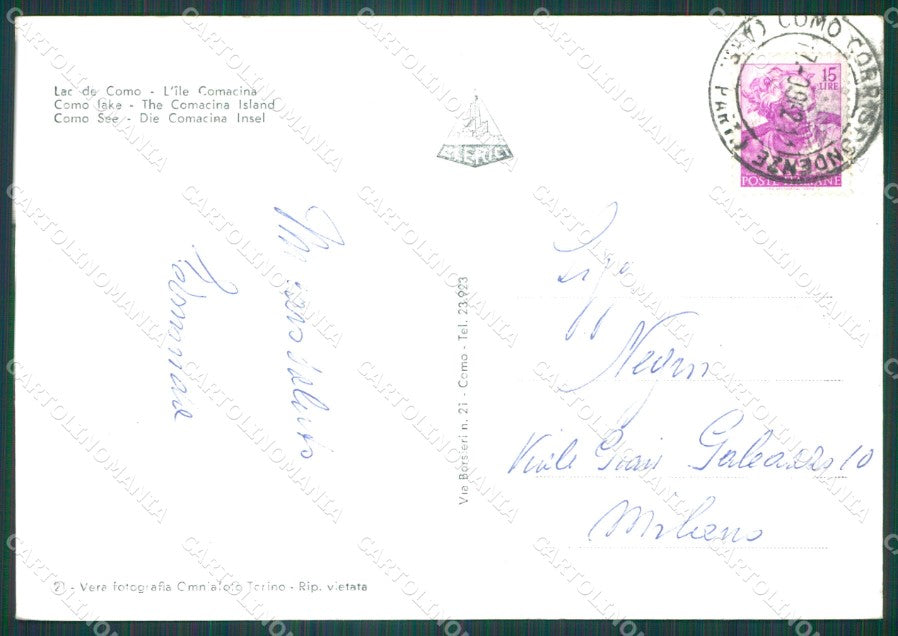 Lac de Como - L'île Comacina
Como lake - The Comacina Island
Como See - Die Comacina Insel
15
LIRE
POSTE ITALIANE
COMO CORRISPONDENZE
Via Borsieri n. 21 - Como - Tel. 23.923
Negri
Viale Gian Galeazzo 10
Milano
- Vera fotografia Omniafoto Torino - Rip. vietata
CARTOLINOMANIA